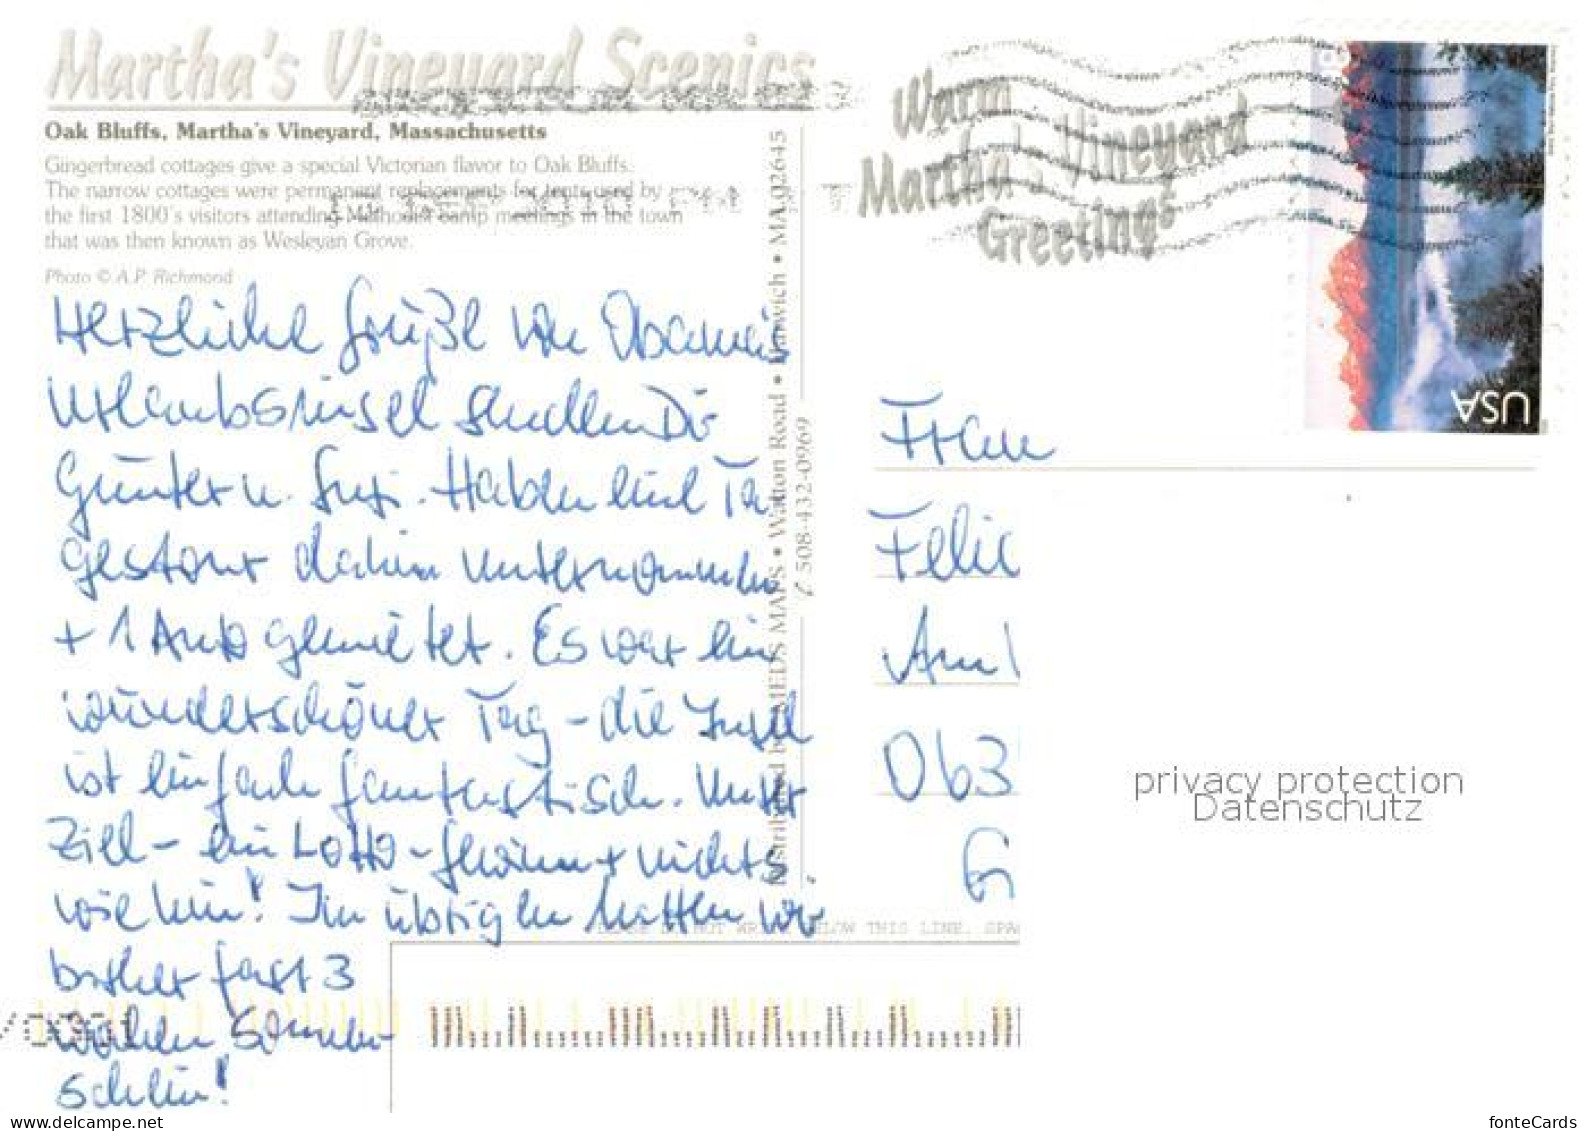 Martha's Vineyard Scenics
Oak Bluffs, Martha's Vineyard, Massachusetts
Gingerbread cottages give a special Victorian flavor to Oak Bluffs.
The narrow cottages were permanent replacements for tents used by
the first 1800's visitors attending Methodist camp meetings in the town
that was then known as Wesleyan Grove.
Photo © A.P. Richmond
Herzliche Grüße von Obamas
Urlaubsinsel senden Dir
Günter u. Susi. Haben eine Ta
gestour dahin unternommen
+ 1 Auto gemietet. Es war ein
wunderschöner Tag - die Insel
ist einfach fantastisch. Unser
Ziel - ein Lotto-Gewinn + nichts
wie hin! Im übrigen hatten wir
bisher fast 3
Wochen Sonnen-
schein!
Distributed by MEDS MAPS • Walton Road • Harwich • MA 02645
508-432-0969
Warm
Martha's Vineyard
Greetings
USA
Frau
Felic
Am
063
G
PLEASE DO NOT WRITE BELOW THIS LINE. SPA
privacy protection
Datenschutz
www.delcampe.net
fonteCards